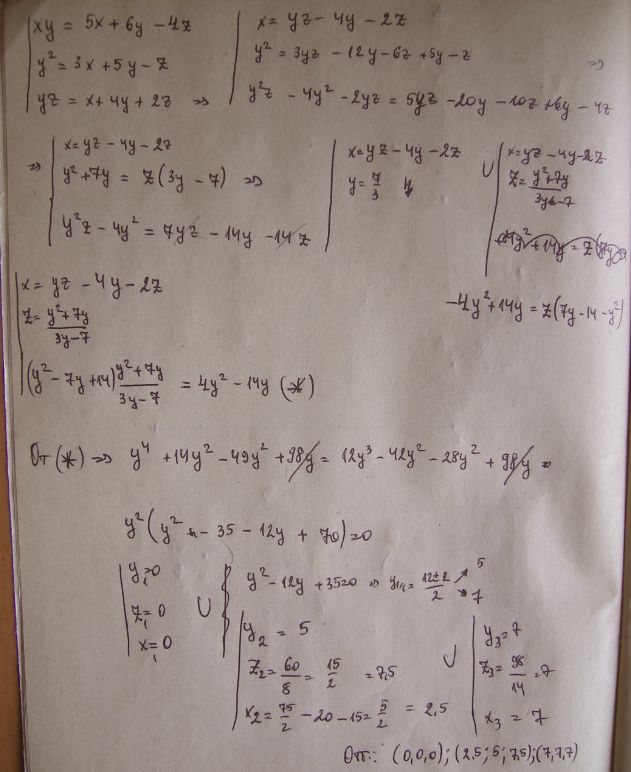 xy = 5x + 6y - 4z
y² = 3x + 5y - z
yz = x + 4y + 2z ⇒
x = yz - 4y - 2z
y² = 3yz - 12y - 6z + 5y - z ⇒
y²z - 4y² - 2yz = 5yz - 20y - 10z + 6y - 4z
⇒ x = yz - 4y - 2z
y² + 7y = z(3y - 7) ⇒
y²z - 4y² = 7yz - 14y - 14z
x = yz - 4y - 2z
y = 7/3
∪ x = yz - 4y - 2z
z = (y² + 7y)/(3y - 7)
-4y² + 14y = z(7y - 14 - y²)
x = yz - 4y - 2z
z = (y² + 7y)/(3y - 7)
(y² - 7y + 14) (y² + 7y)/(3y - 7) = 4y² - 14y (*)
От (*) ⇒ y⁴ + 14y² - 49y² + 98y = 12y³ - 42y² - 28y² + 98y ⇒
y²(y² - 35 - 12y + 70) = 0
y₁ = 0
z₁ = 0
x₁ = 0
∪ y² - 12y + 35 = 0 ⇒ y₁/₂ = (12 ± 2)/2 5 7
y₂ = 5
z₂ = 60/8 = 15/2 = 7,5
x₂ = 75/2 - 20 - 15 = 5/2 = 2,5
∪ y₃ = 7
z₃ = 98/14 = 7
x₃ = 7
Отг.: (0,0,0); (2,5; 5; 7,5); (7,7,7)